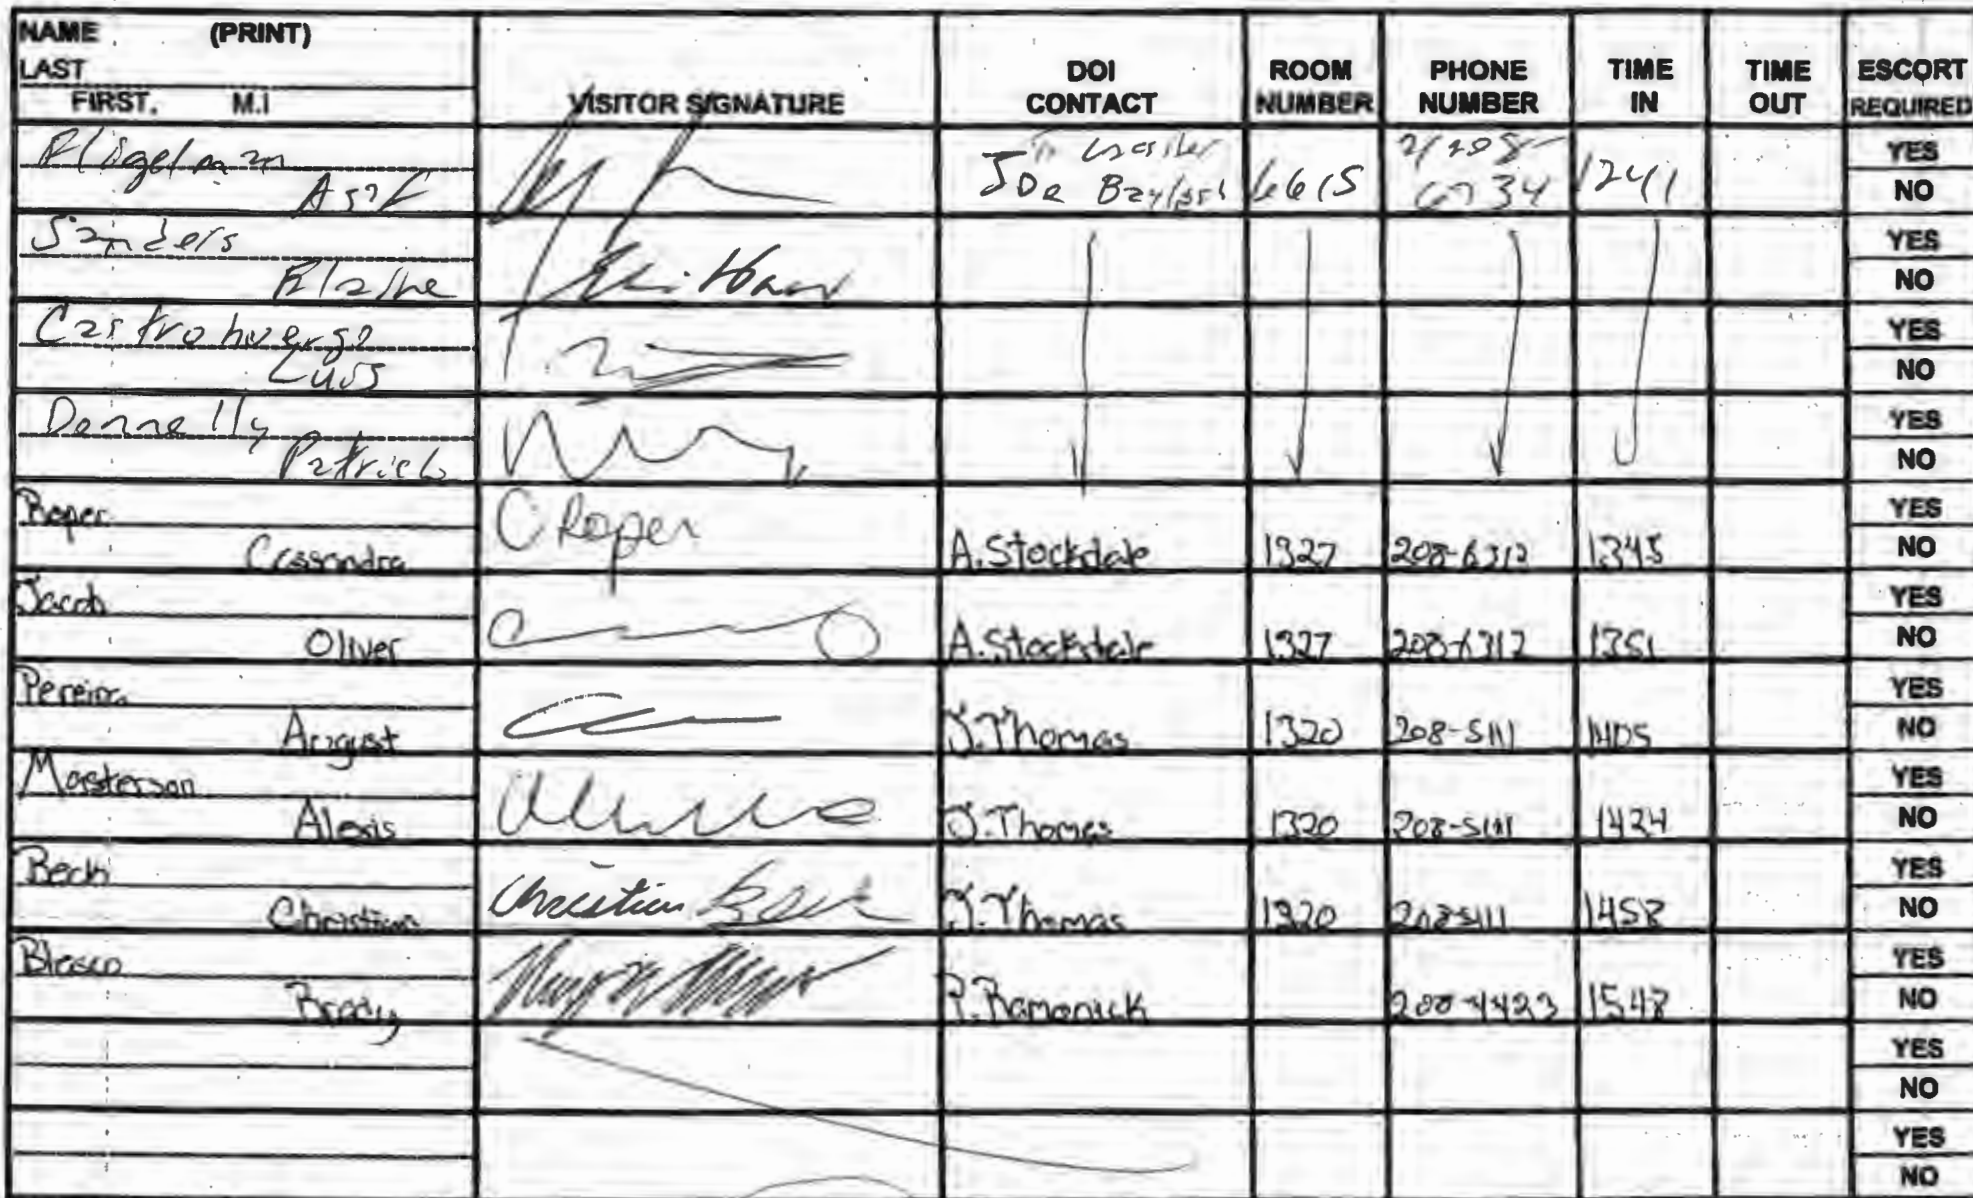 NAME (PRINT)
LAST
FIRST. M.I
VISITOR SIGNATURE
DOI CONTACT
ROOM NUMBER
PHONE NUMBER
TIME IN
TIME OUT
ESCORT REQUIRED
Fligelman
Asaf
Joe 6615 1241
YES
NO
Sanders
Elaine
YES
NO
Luis
YES
NO
Donnelly
Patrick
YES
NO
Roper
Cassandra C Roper A. Stockdale 1327 208-6312 1345
YES
NO
Jacob
Oliver A. Stockdale 1327 208-6312 1351
YES
NO
Pereira
August J. Thomas 1320 208-5111 1405
YES
NO
Masterson
Alexis J. Thomas 1320 208-5111 1424
YES
NO
Beck
Christian Christian Beck J. Thomas 1320 208-5111 1458
YES
NO
Blasco
Brady 1548
YES
NO
YES
NO
YES
NO